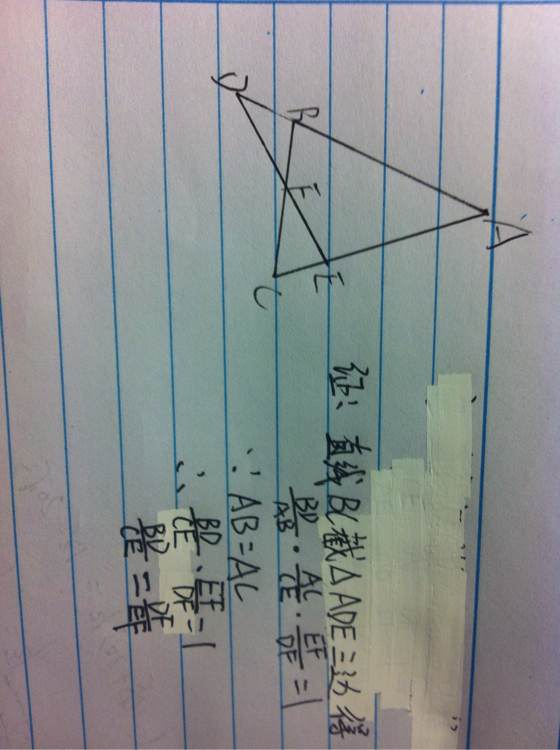 A
B
E
F
C
D
证：直线BC截△ADE三边得
BD/AB · AC/CE · EF/DF = 1
∵ AB=AC
∴ BD/CE · EF/DF = 1
BD/CE = DF/EF